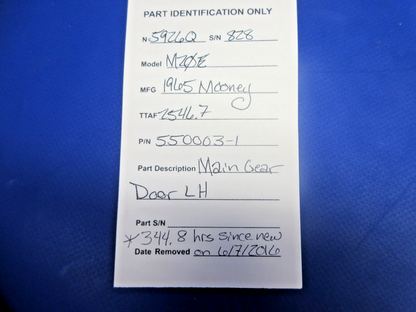 PART IDENTIFICATION ONLY
N 5926Q S/N 828
Model M20E
MFG 1965 Mooney
TTAF 2546.7
P/N 550003-1
Part Description Main Gear
Door LH
Part S/N
* 344.8 hrs since new
Date Removed on 6/7/2016